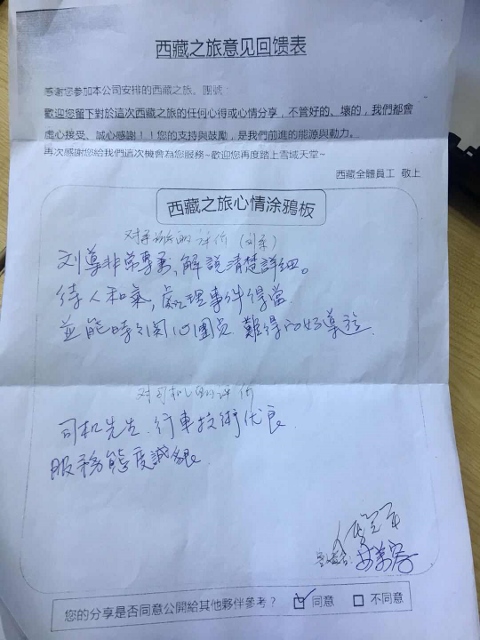 西藏之旅意见回馈表
感謝您參加本公司安排的西藏之旅、團號:
歡迎您留下對於這次西藏之旅的任何心得或心情分享，不管好的、壞的，我們都會
虛心接受、誠心感謝！！您的支持與鼓勵，是我們前進的能源與動力。
再次感謝您給我們這次機會為您服務~歡迎您再度踏上雪域天堂~
西藏全體員工 敬上
西藏之旅心情涂鴉板
刘導非常專業,解說清楚詳細。
待人和氣,處理事件得當
並能時刻関心團員 難得的好導遊
对司机的评价
司机先生.行車技術优良
服務態度誠懇
您的分享是否同意公開給其他夥伴參考？ ☑ 同意 □ 不同意